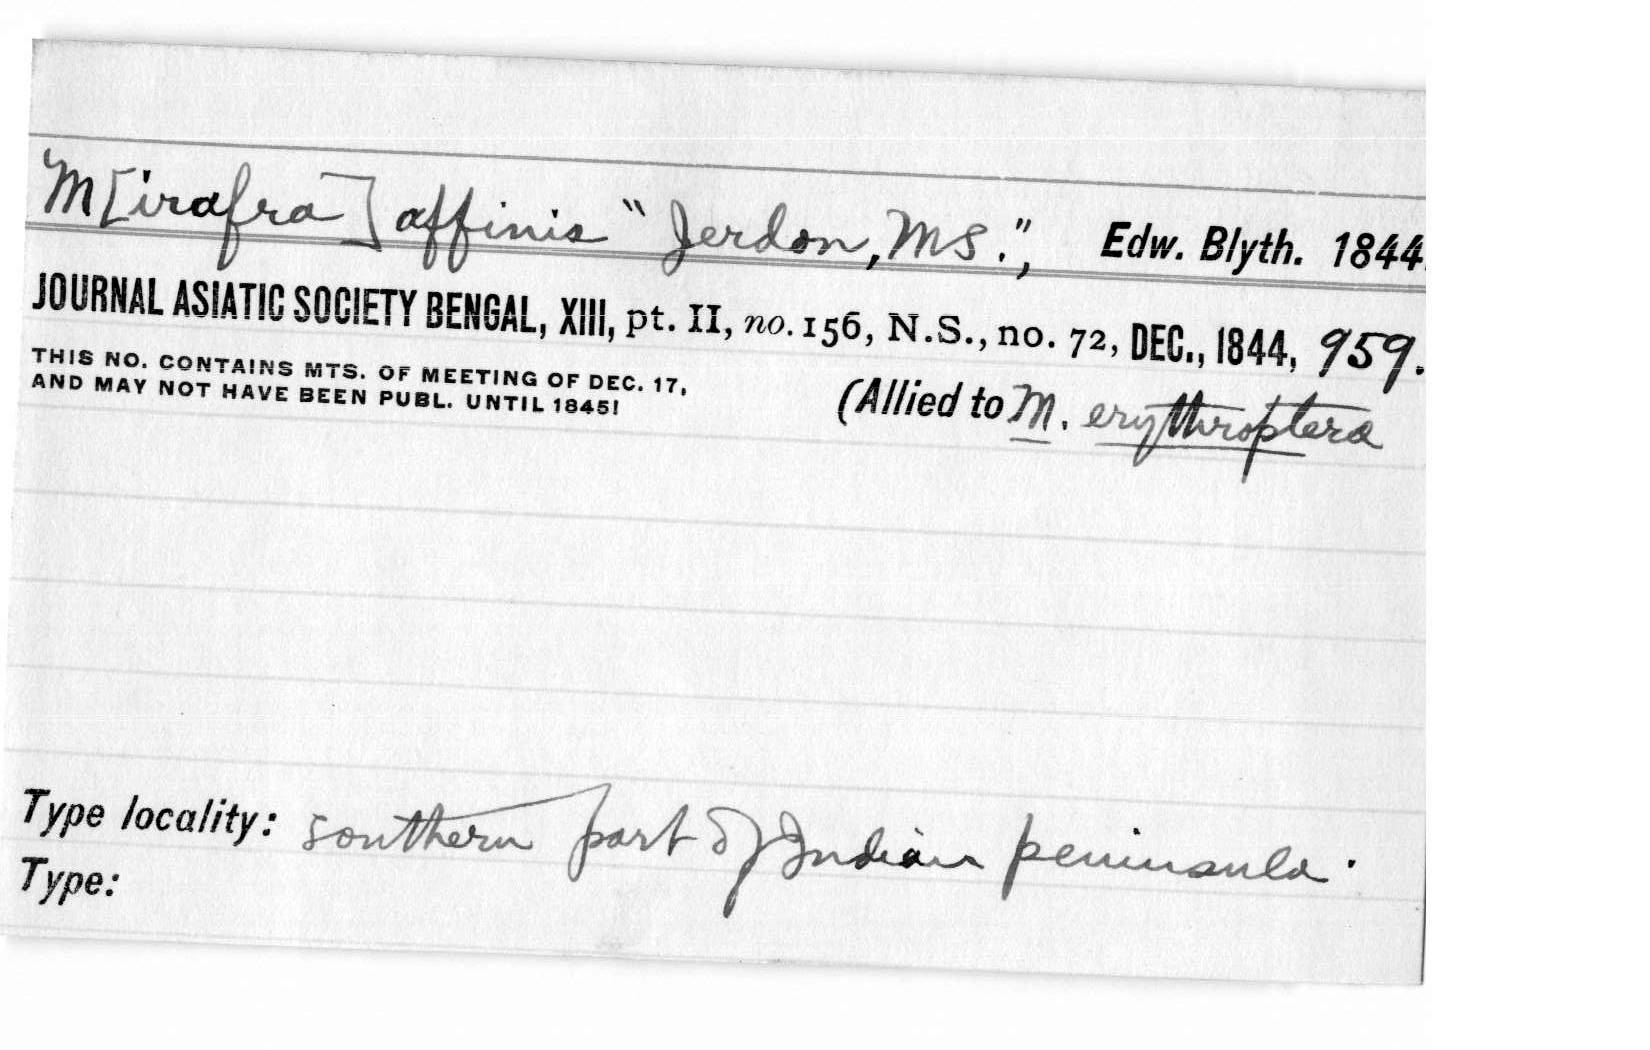 M[irafra] affinis "Jerdon, MS.", Edw. Blyth. 1844.
JOURNAL ASIATIC SOCIETY BENGAL, XIII, pt. II, no. 156, N.S., no. 72, DEC., 1844, 959.
THIS NO. CONTAINS MTS. OF MEETING OF DEC. 17,
AND MAY NOT HAVE BEEN PUBL. UNTIL 1845!
(Allied to M. erythroptera
Type locality: southern part of Indian peninsula.
Type: